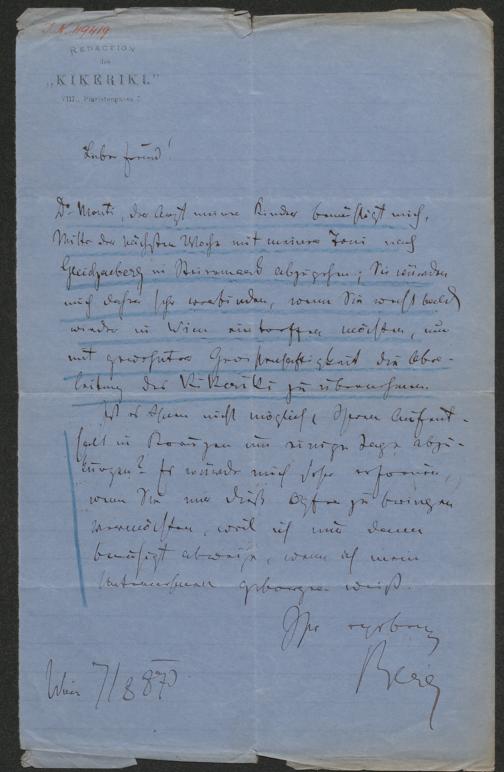 J. N. 49419
REDACTION
des
„KIKERIKI."
VIII., Piaristengasse
Lieber Freund!
Dr Monti, der Arzt meiner Kinder bemüßigt mich,
Mitte der nächsten Woche mit meiner Toni nach
Gleichenberg in Steiermark abzugehen; Sie würden
mich daher sehr verbinden, wenn Sie recht bald
wieder in Wien eintreffen möchten, um
mit gewohnter die Ober-
leitung des Kikeriki zu übernehmen.
Ist es Ihnen nicht möglich, Ihren Aufent-
halt in um einige Tage abzu-
kürzen? Es würde mich sehr erfreuen,
wenn Sie mir dieß Opfer zu bringen
vermöchten, weil ich nur dann
beruhigt abreise, wenn ich mein
Unternehmen geborgen weiß.
Ihr ergebener
Berg
Wien 7/8 870